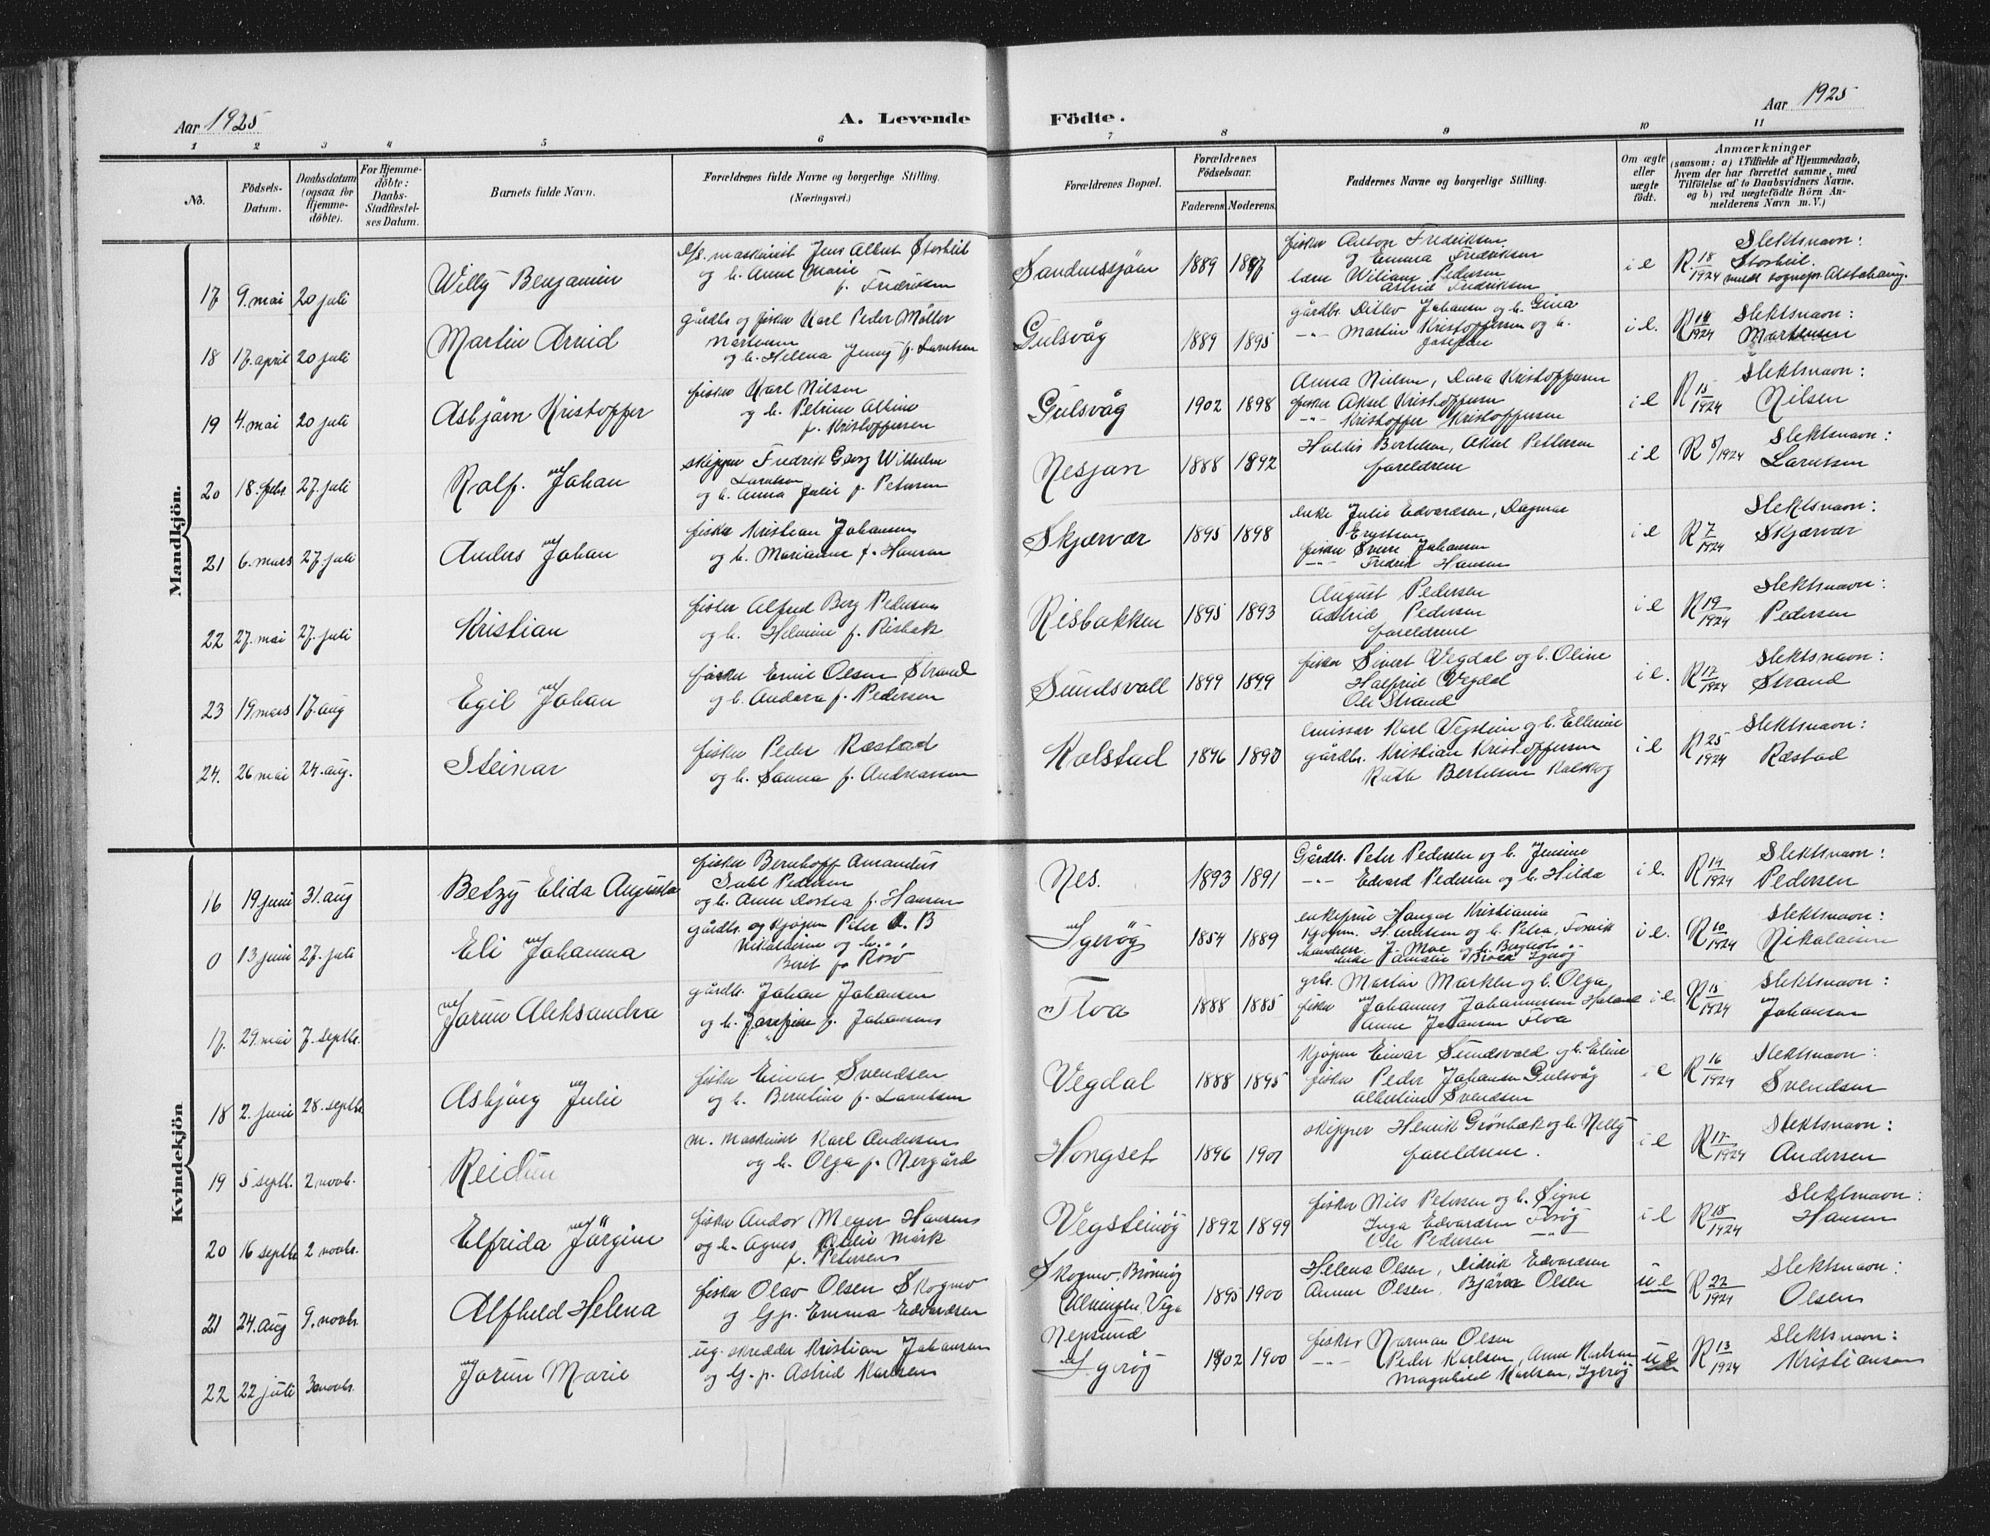 Aar 1925
A. Levende Födte.
Aar 1925
1 2 3 4 5 6 7 8 9 10 11
No.
Födsels-Datum.
Daabsdatum (ogsaa for Hjemme-döbte).
For Hjemme-döbte: Daabs-Stadfæstel-ses Datum.
Barnets fulde Navn.
Forældrenes fulde Navne og borgerlige Stilling. (Næringsvei.)
Forældrenes Bopæl.
Forældrenes Födselsaar.
Faderens. Moderens.
Faddernes Navne og borgerlige Stilling.
Om ægte eller uægte födt.
Anmærkninger
(saasom: a) i Tilfælde af Hjemmedaab, hvem der har forrettet samme, med Tilföielse af to Daabsvidners Navne, og b) ved uægtefödte Börn Anmelderens Navn m. V.)
Mandkjön.
17 9. mai 20 juli Willy Benjamin maskinist Jens Albert Storheil og h. Anne Marie f. Fredriksen Sandnessjøen 1889 1897 fisker Anton Fredriksen Emma Fredriksen Wiliam Pedersen Astrid Fredriksen i e R. 18/1924 Slektsnavn: Storheil. sognepr. Alstahaug.
18 17. april 20 juli Martin Arvid gårdbr. og fisker Karl Peder Møller Martensen og h. Helena Jenny f. Larntsen Gulsvåg 1889 1895 gårdbr. Ditlev Johansen og h. Gina -"- Martin Kristoffersen og h. Josefine i e. R 14/1924 Slektsnavn: Martensen
19 4. mai 20 juli Asbjørn Kristoffer fisker Karl Nilsen og h. Petrine Albine f. Kristoffersen Gulsvåg 1902 1898 Anna Nielsen, Dora Kristoffersen fisker Aksel Kristoffersen -"- Kristoffer Kristoffersen i e R 15/1924 Slektsnavn: Nilsen
20 18. febr. 27. juli Rolf Johan skipper Fredrik Georg Wilhelm Larntsen og h. Anna Julie f. Petersen Nesjan 1888 1892 Haldis Bertelsen, Aksel Pettersen foreldrene i e R 5/1924 Slektsnavn: Larntsen
21 6. mars 27. juli Anders Johan fisker Kristian Johansen og h. Marianne f. Hansen Skjærvær 1895 1898 enke Julie Edvardsen, Dagmar fisker Sverre Johansen -"- Fredrik Hansen i e R 7/1924 Slektsnavn: Skjærvær
22 27. mai 27. juli Kristian fisker Alfred Berg Pedersen og h. Helmine f. Risbak Risbakken 1895 1893 August Pedersen Astrid Pedersen foreldrene i e R 19/1924 Slektsnavn: Pedersen
23 19. mars 17. aug Egil Johan fisker Emil Olsen Strand og h. Andora f. Pedersen Sundsvoll 1899 1899 fisker Sivert Vegdal og h. Oline Halfrid Vegdal Ole Strand i e. R 17/1924 Slektsnavn: Strand
24. 26 mai 24. aug. Steinar fisker Peder Ræstad og h. Sanna f. Andreassen Kolstad 1896 1890 emissær Karl Vegstein og h. Elterine gårdbr. Kristian Kristoffersen Ruth Bertelsen i e R 25/1924 Slektsnavn: Ræstad
Kvindekjön
16 19 juni 31. aug Betzy Elida Augusta fisker Bernhoff Amandus Pedersen og h. Anne Dortea f. Hansen Nes. 1893 1891 Gårdbr. Peter Pedersen og h. Jensine -"- Edvard Pedersen og h. Hilda i e. R 14/1924 Slektsnavn: Pedersen
0 13 juni 27. juli Eli Johanna gårdbr. og kjøpm Peter A. B Nikolaisen og h. Berit f. Rosö Igerøy 1854 1889 enkefrue Hanna Kristianne i e. R 10/1924 Slektsnavn: Nikolaisen
17. 29. mai 7. septbr. Jorun Aleksandra gårdbr. Johan Johansen og h. Josefine f. Johansens Floa 1888 1885 grb. Martin Marken og h. Olga fisker Johannes Johannessen Anne Johansen Floa i e. R 15/1924 Slektsnavn: Johansen
18 2. juni 28. septbr Asbjørg Julie fisker Einar Svendsen og h. Berntine f. Larntsen Vegdal 1888 1895 kjøpm Einar Sundsvold og h. Eline fisker Peder Johansen Gulsvåg Albertine Svendsen i e R 16/1924 Slektsnavn: Svendsen
19 5 septb. 2. novb. Reidun m. maskinist Karl Andersen og h. Olga f. Nergård Hongset 1896 1901 skipper Henrik Grönbæk og h. Nelly foreldrene. i e R 17/1924 Slektsnavn: Andersen
20 16 septbr 2 novbr. Elfrida Jörgine fisker Andor Meyer Hansens og h. Agnes Mörk f. Petersens Vegsteinøy 1892 1899 fisker Nils Petersen og h. Signe Inga Edvardsen Ole Pedersen -"- i e R 18/1924 Slektsnavn: Hansen
21 24. aug 9. novbr. Alfhild Helena fisker Olav Olsen Skogmo og Gp. Emma Edvardsen Skogmo, Brönnöy Ulvingen, Vega 1895 1900 Helena Olsen, Didrik Edvardsen Anne Olsen, Bjarne Olsen u e R 22/1924 Slektsnavn: Olsen
22 22 juli 30 novbr. Jorun Marie ug. skredder Kristian Johansen og G. p. Astrid Karlsens Nepsund Igerøy 1902 1900 fisker Norman Olsen -"- Peder Karlsen, Anne Karlsen Magnhild Karlsen, Igerøy u e R 13/1924 Slektsnavn: Kristiansen